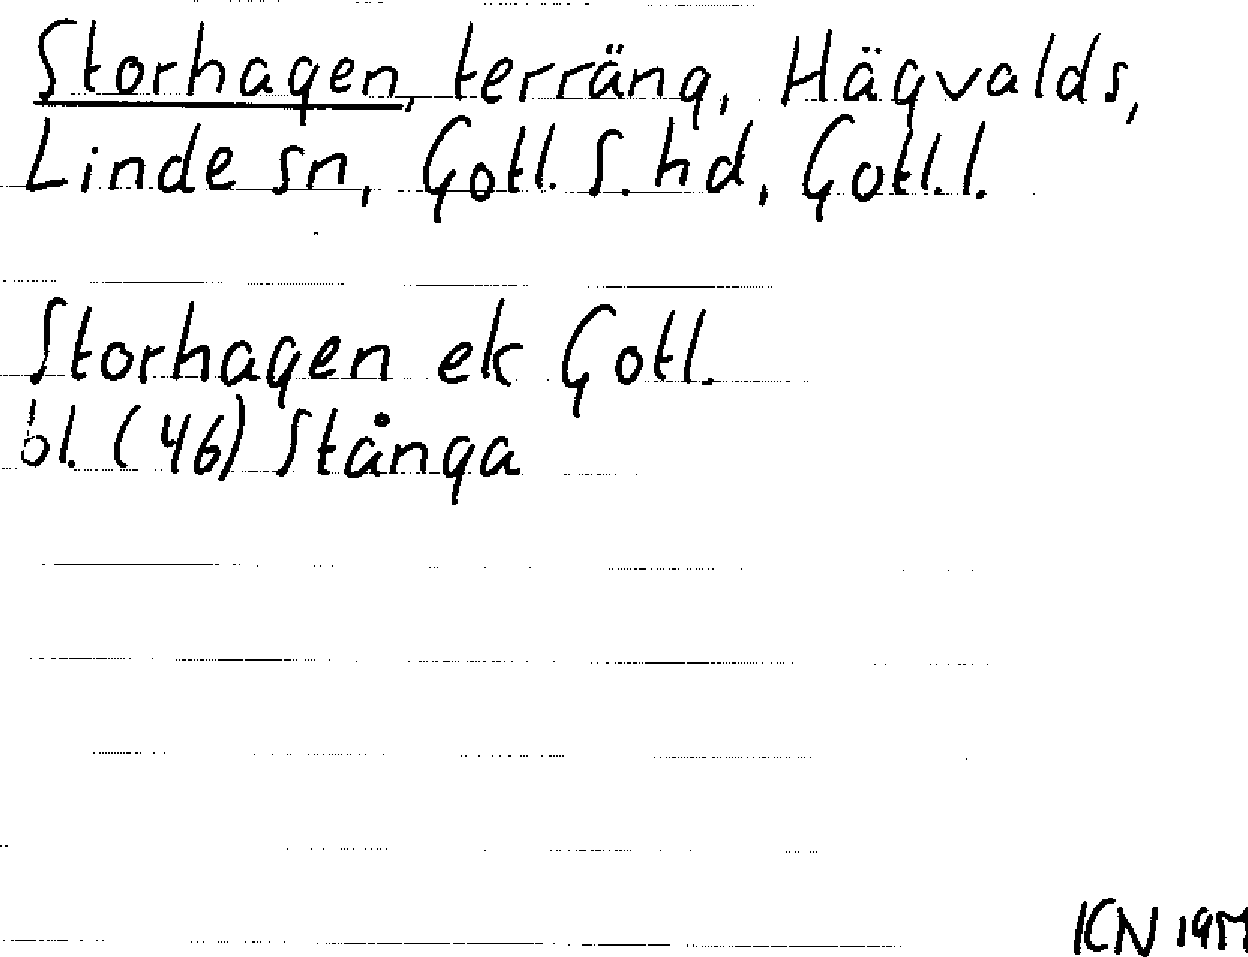 Storhagen, terräng, Hägvalds,
Linde sn, Gotl. S. hd, Gotl. l.
Storhagen ek Gotl.
bl. (46) Stånga
ICN